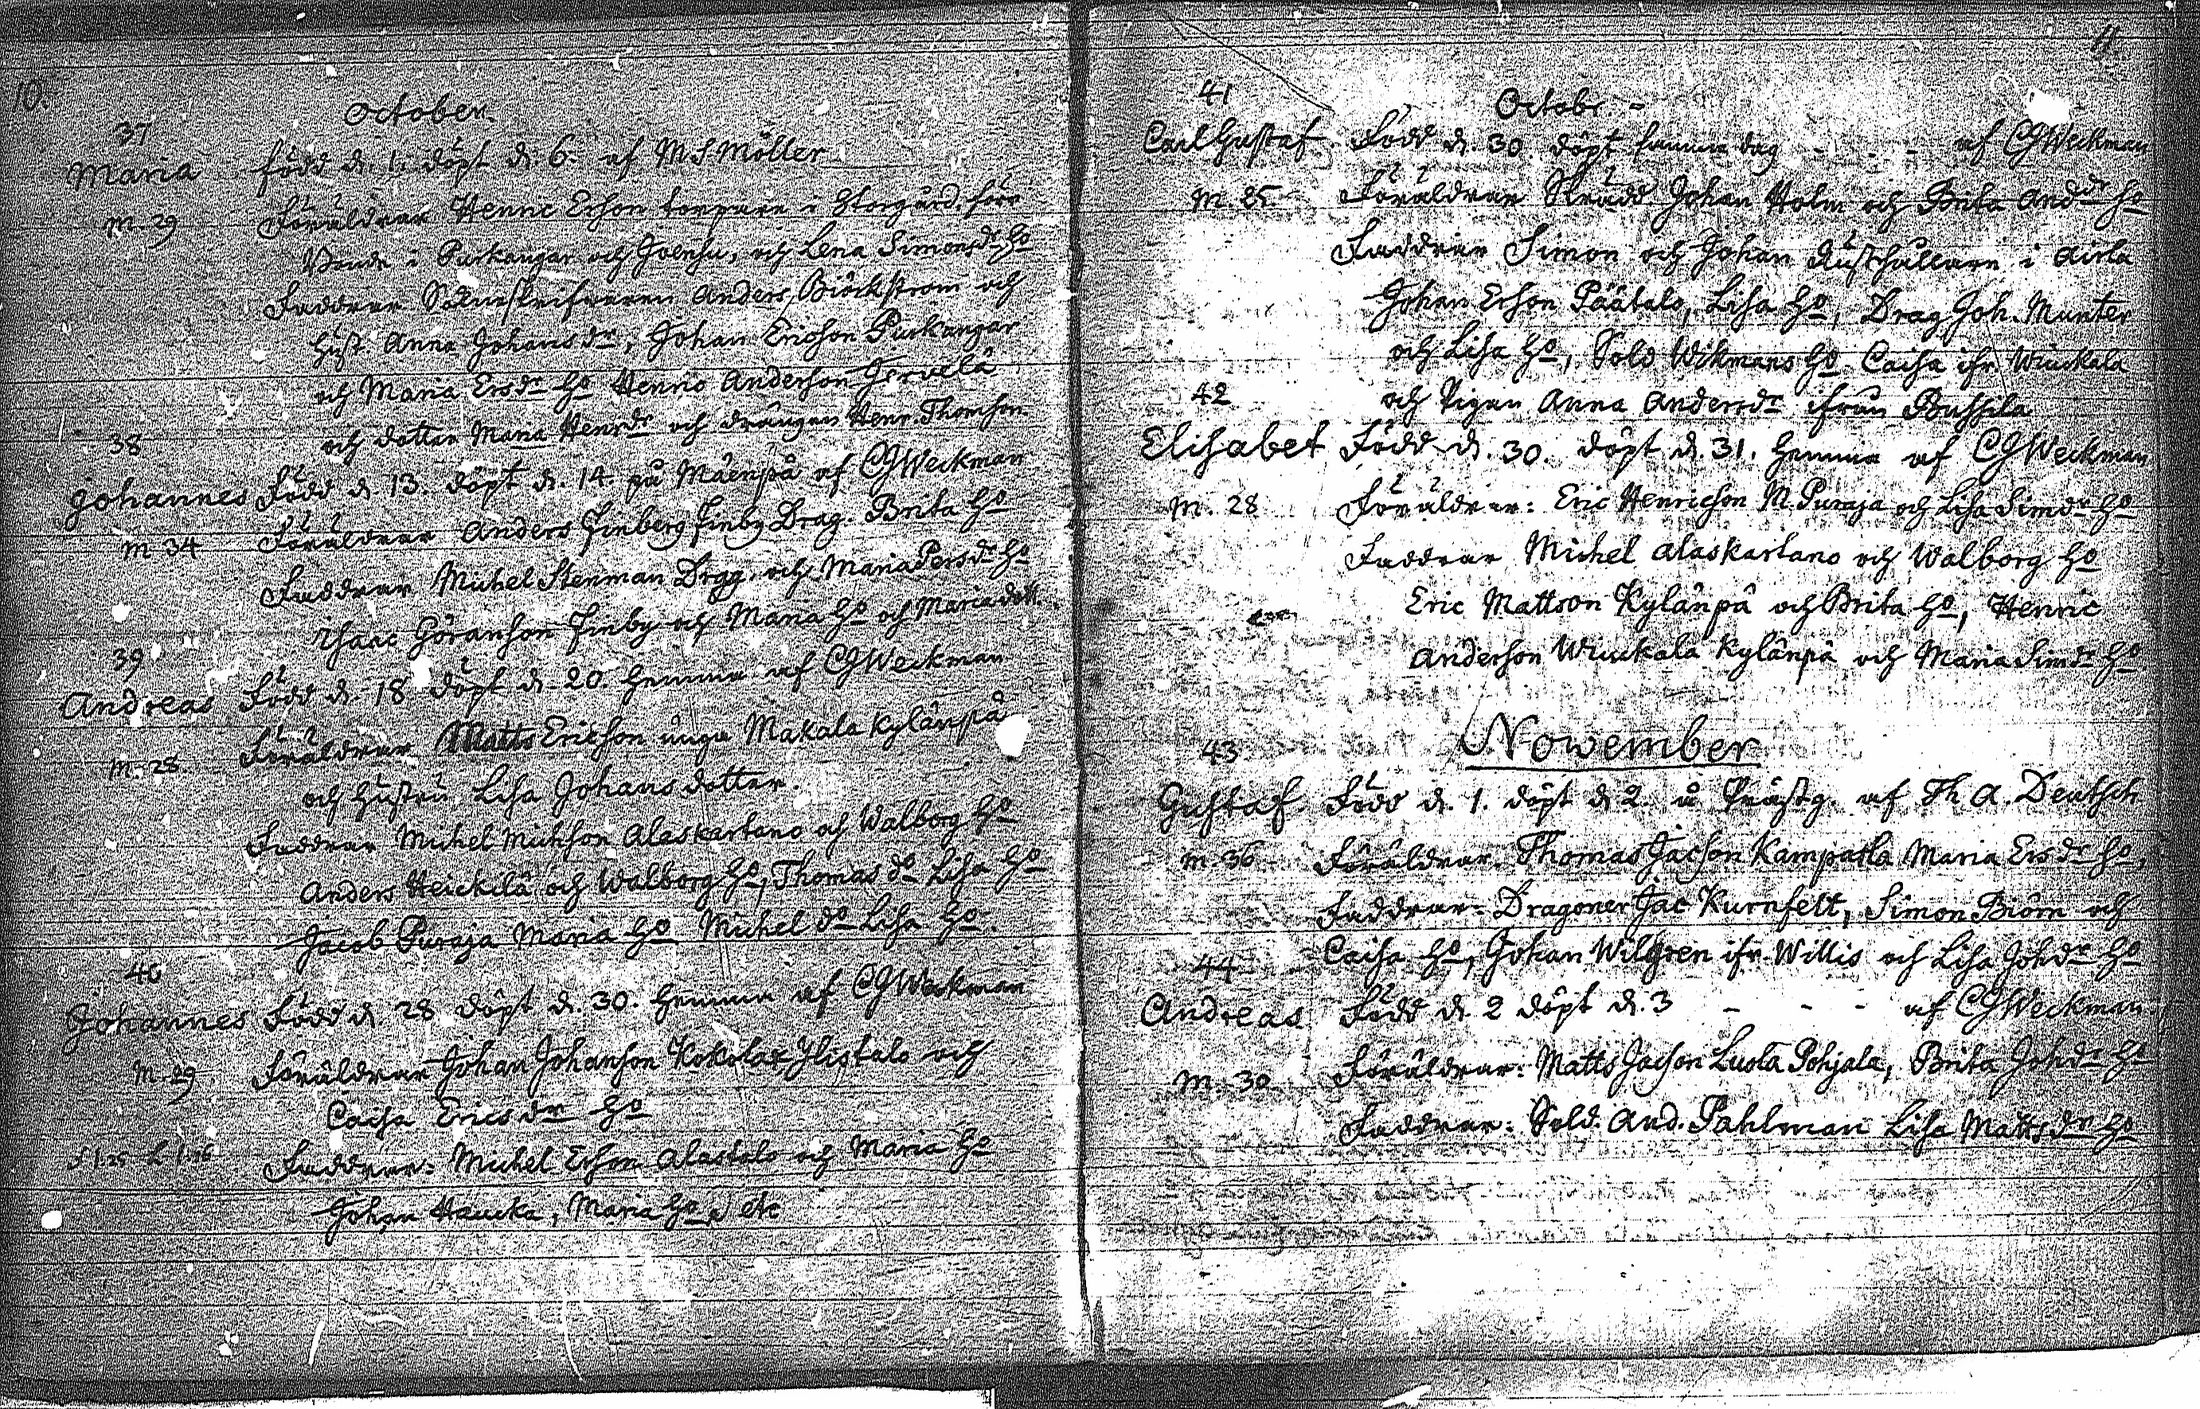 10.
October.
37
Maria född d. 1. döpt d. 6. af M S Möller
M. 29 Föräldrar Henric Erson torpare i Storgård, förr
Bonde i Purkangar och Joensu, och Lena Simonsdr ho
Faddrar Sokneskrifvaren Anders Biörkstrom och
Hust. Anna Johansdr, Johan Ericson Purkangar
och Maria Ersdr ho Henric Anderson Jervelä
och dotter Maria Henrdr och drängen Henr. Thomson
38
Johannes Född d. 13. döpt d. 14. på Mäenpä af CGWeckman
M. 34 Föräldrar Anders Finberg Finby Drag. Brita ho
Faddrar Michel Stenman Drag. och Maria Persdr ho
Isaac Göranson Finby och Maria ho och Maria dott.
39
Andreas Född d. 18 döpt d. 20. hemma af CGWeckman
M. 28. Föräldrar Matts Ericson unga Makala Kylänpä
och hustru Lisa Johansdotter.
Faddrar Michel Michson Alaskartano och Walborg ho
Anders Heickilä och Walborg ho, Thomas do Lisa ho
Jacob Puraja Maria ho Michel do Lisa ho.
40
Johannes Född d. 28 döpt d. 30. hemma af CGWeckman
M. 29. Föräldrar Johan Johanson Kokola Ylistalo och
Caisa Ericsdr ho
Faddrar: Michel Erson Alastalo och Maria ho
Johan Haucka, Maria ho, etc
11.
41
Octobr -
Carl Gustaf. Född d. 30. döpt samma dag - - - af CGWeckman
M. 25. Föräldrar Skrädd Johan Holm och Brita Anddr ho
Faddrar Simon och Johan Rusthållare i Airla
Johan Erson Päätalo, Lisa ho, Drag Joh. Munter
och Lisa ho, Sold Wikmans ho Caisa ifr Wiuckala
42 och Pigan Anna Andersdr ifrån Pussila
Elisabet Född d. 30. döpt d. 31. hemma af CGWeckman
M. 28 Föräldrar: Eric Henricson M. Puraja och Lisa Simdr ho
Faddrar Michel Alaskartano och Walborg ho
Eric Mattson Kylänpä och Brita ho, Henric
Anderson Wiuckala Kylänpä och Maria Simdr ho
43 Nowember
Gustaf Född d. 1. döpt d 2. å Prästg. af Th. A. Deutsch
M. 36 Föräldrar. Thomas Jacson Kampatla Maria Ersdr ho,
Faddrar: Dragoner Jac Kurnfelt, Simon Biörn och
44 Caisa ho, Johan Wilgren ifr. Willis och Lisa Johdr ho
Andreas Född d. 2 döpt d. 3 - - - af CGWeckman
M. 30 Föräldrar: Matts Jacson Lusla Pohjala, Brita Johdr ho
Faddrar: Sold. And. Pahlman Lisa Mattsdr ho